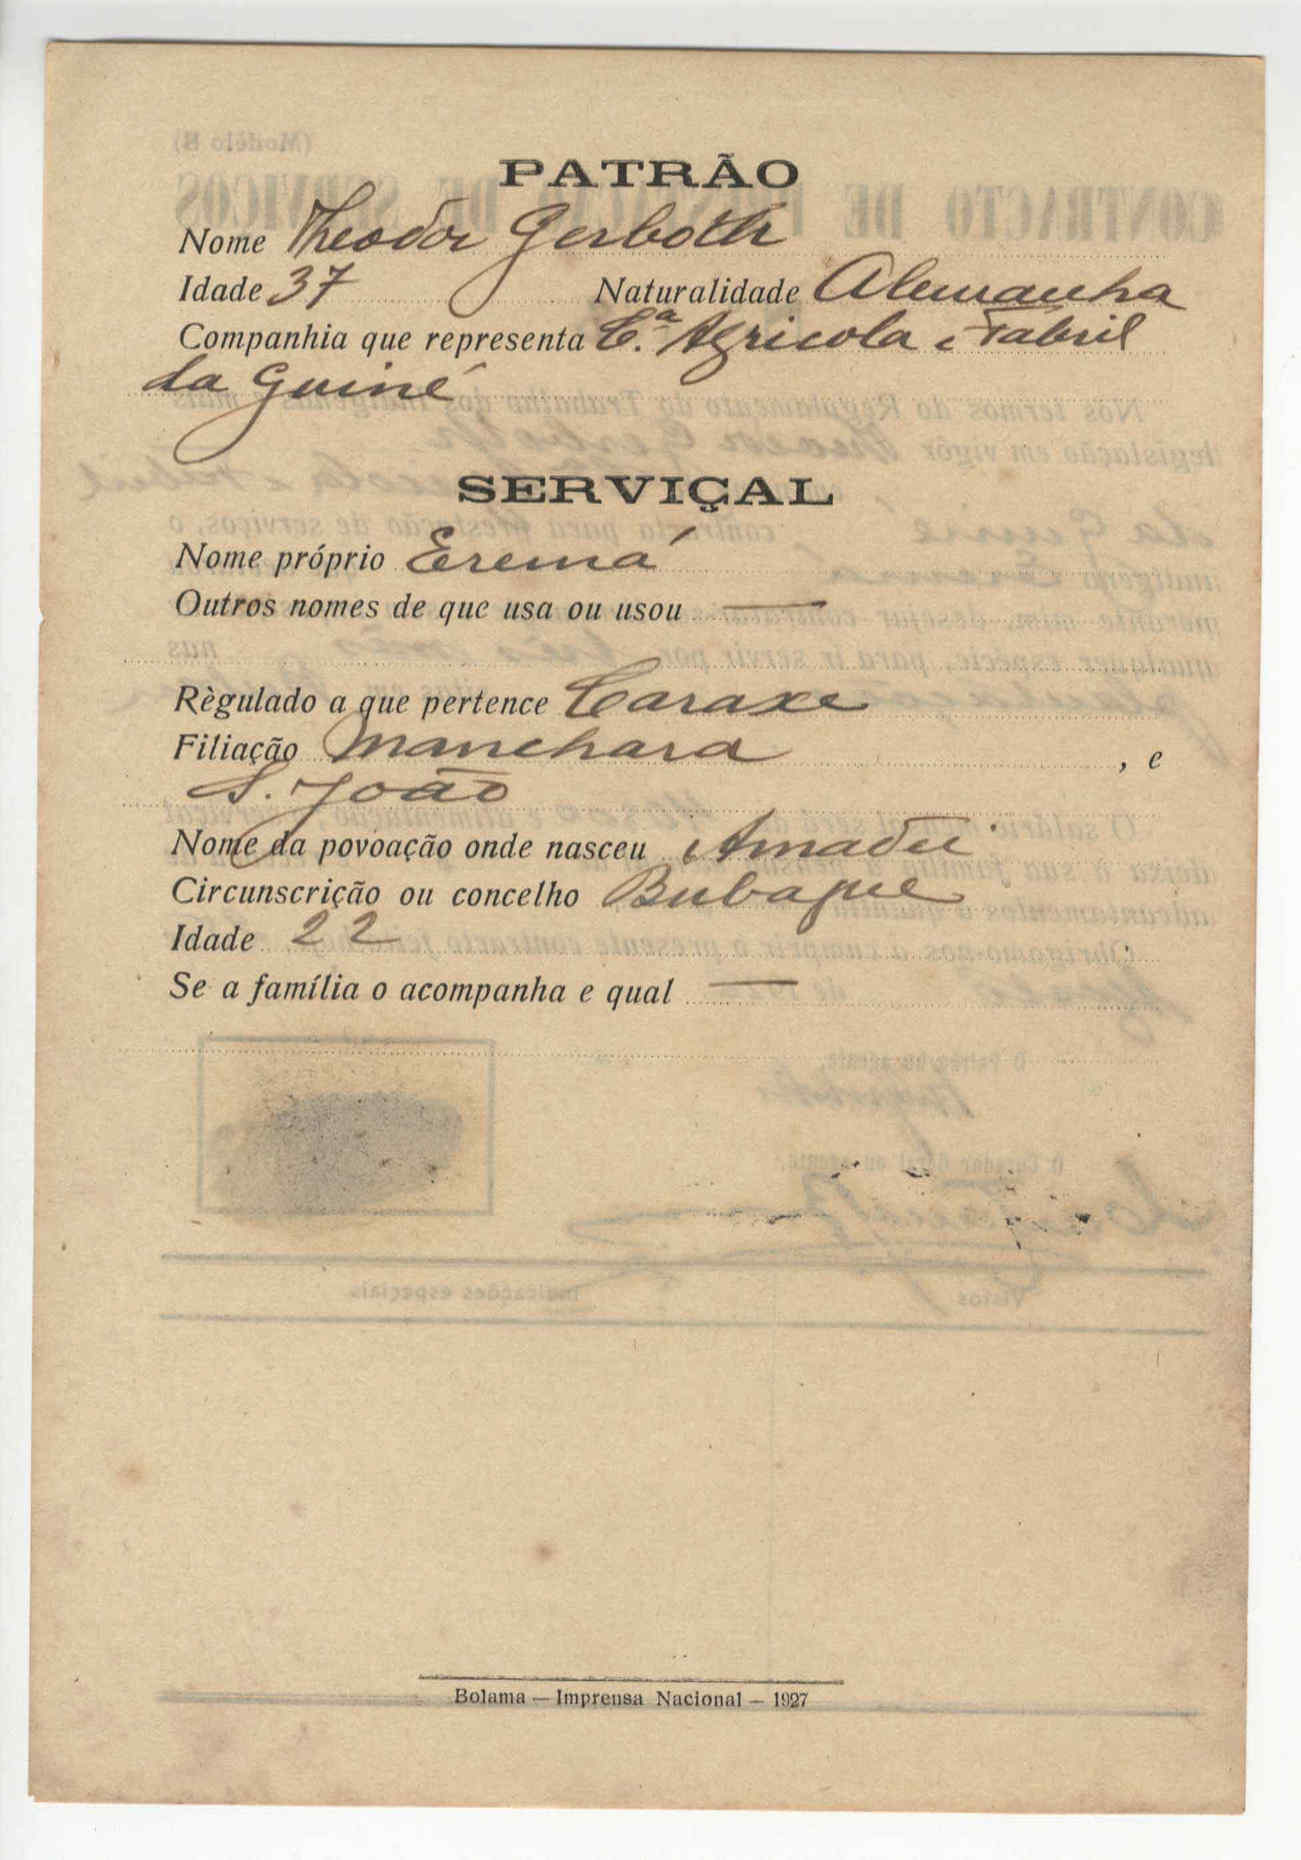 PATRÃO
Nome Theodor Gerboth
Idade 37 Naturalidade Alemanha
Companhia que representa C.ª Agricola e Fabril
da Guiné
SERVIÇAL
Nome próprio Eremá
Outros nomes de que usa ou usou —
Règulado a que pertence Caraxe
Filiação Manchara, e
S. João
Nome da povoação onde nasceu Amadu
Circunscrição ou concelho Bubaque
Idade 22
Se a família o acompanha e qual —
Bolama — Imprensa Nacional — 1927